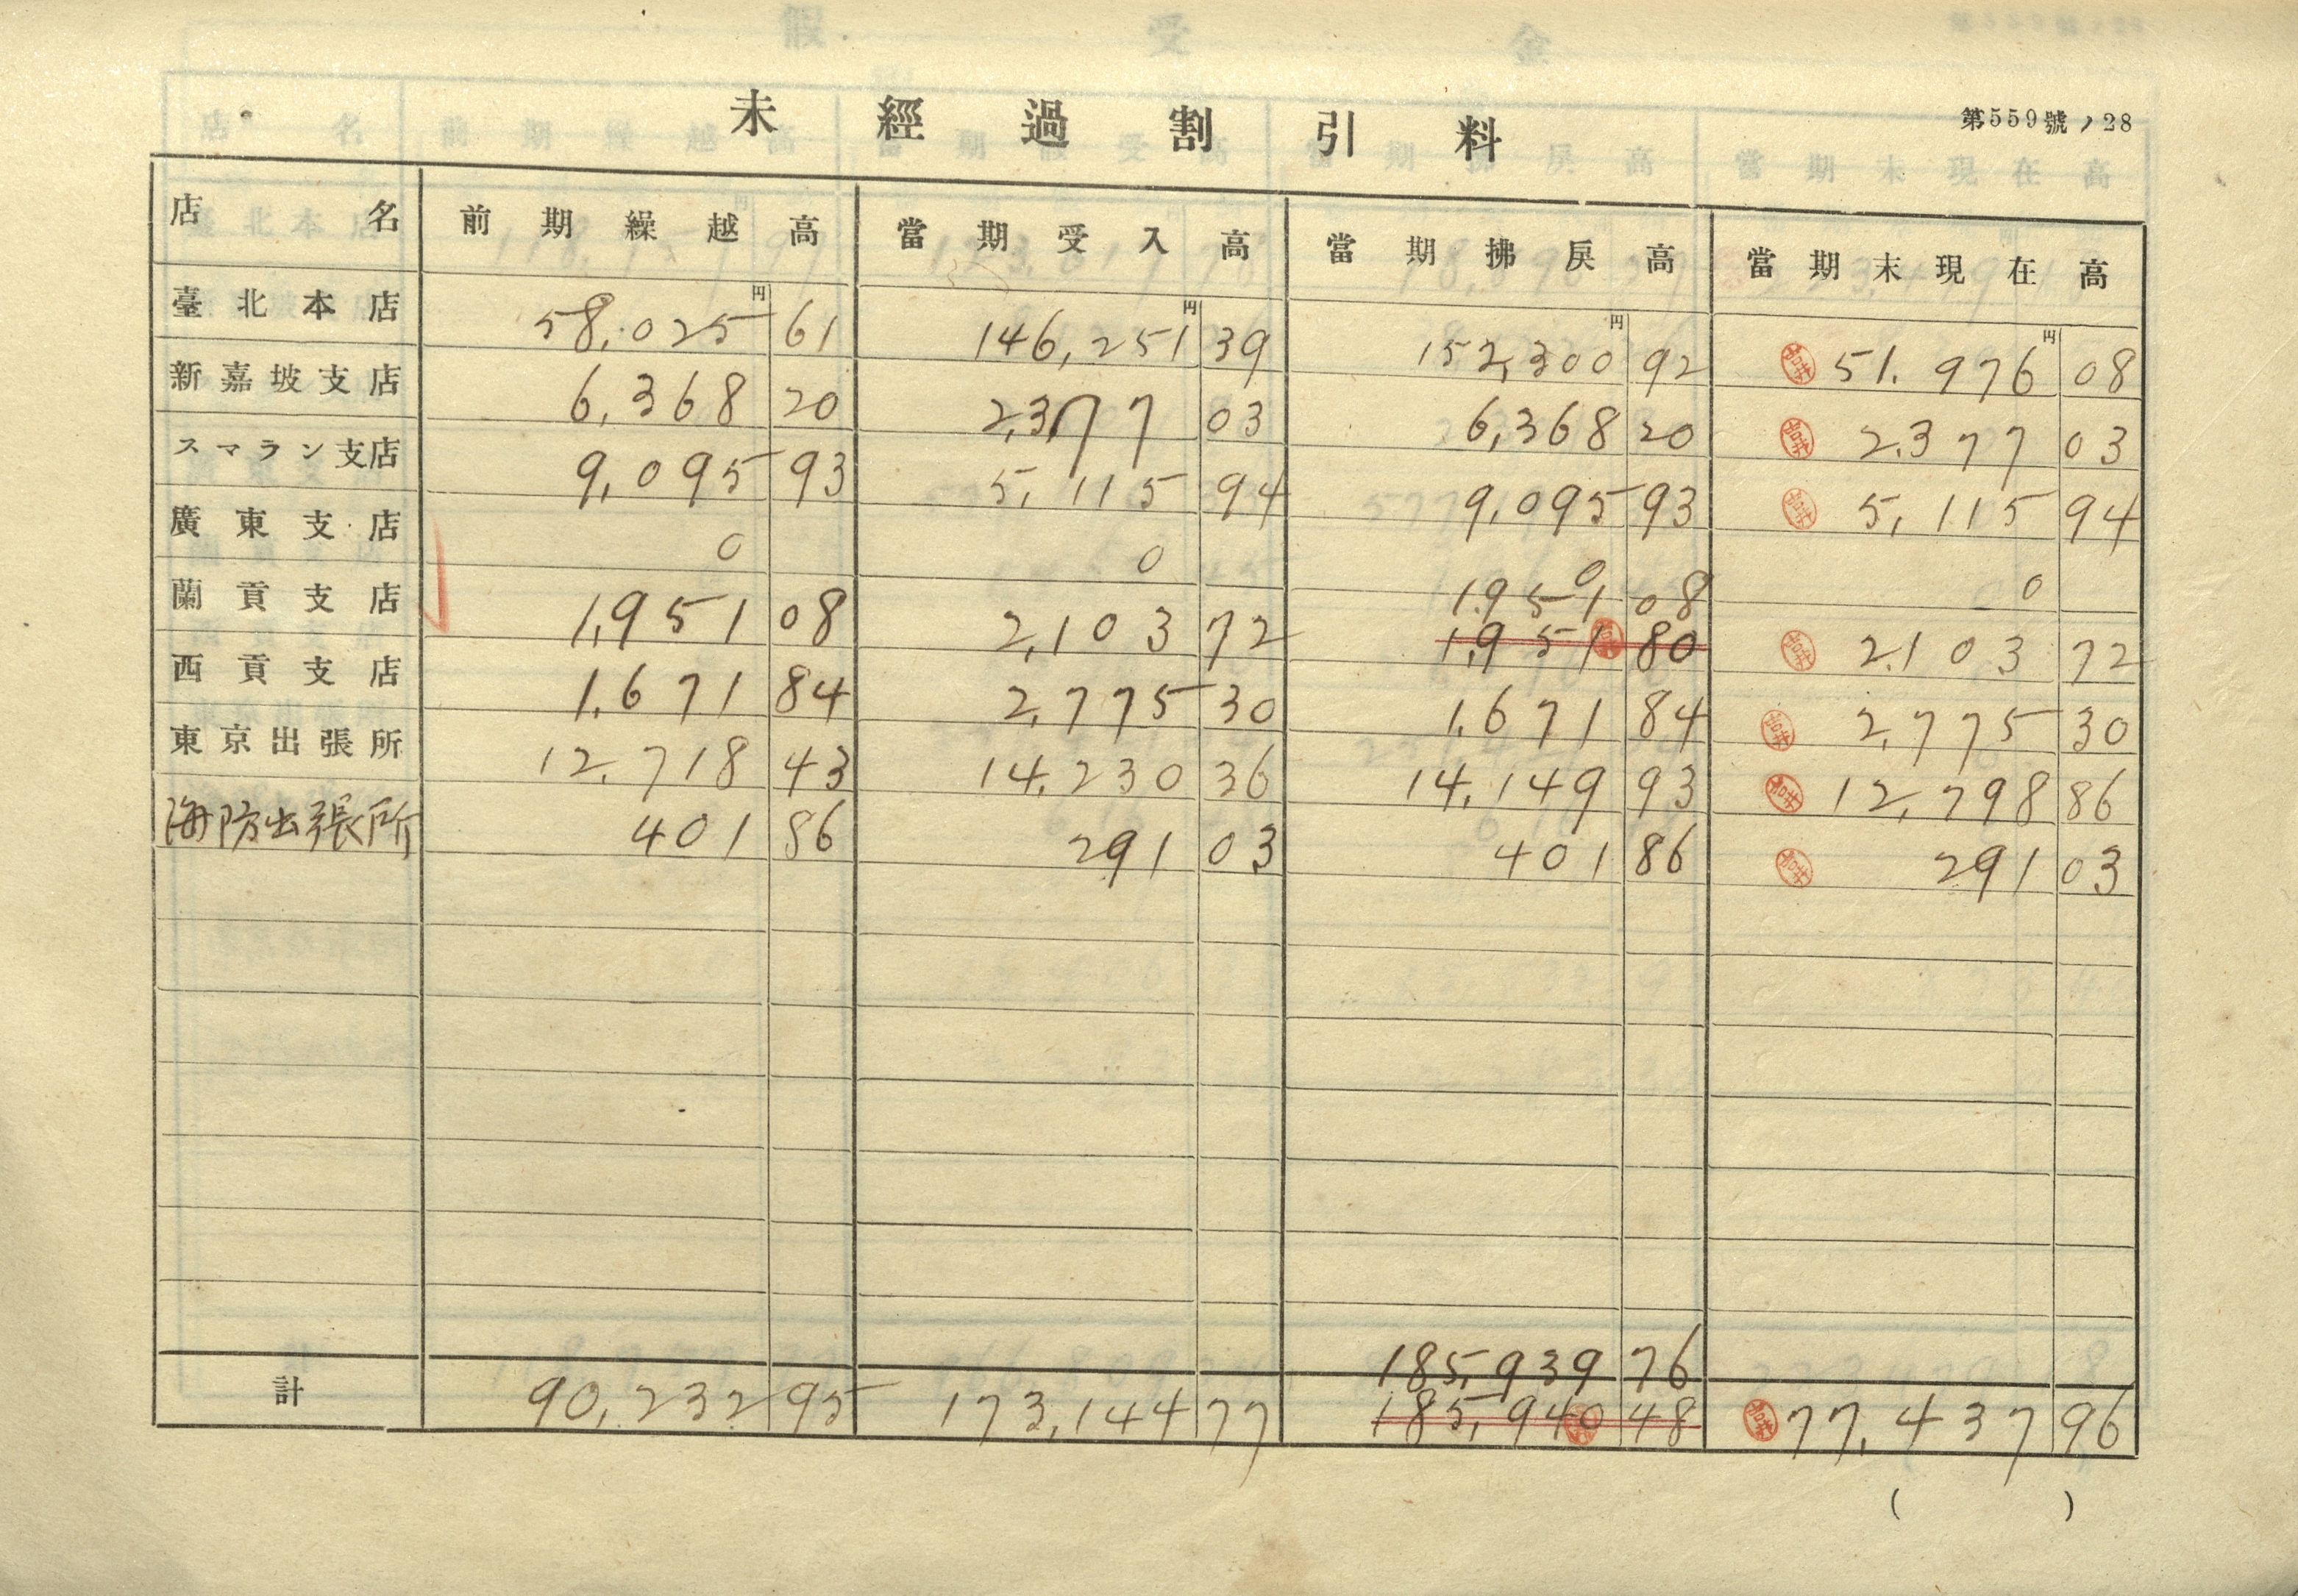 第559號ノ28
未經過割引料
店名 前期繰越高 當期受入高 當期拂戾高 當期末現在高
円 円 円 円
臺北本店 58,025 61 146,251 39 152,300 92 51,976 08
新嘉坡支店 6,368 20 2,377 03 6,368 20 2,377 03
スマラン支店 9,095 93 5,115 94 9,095 93 5,115 94
廣東支店 0 0 0 0
1,951 08
蘭貢支店 1,951 08 2,103 72 1,951 80 2,103 72
西貢支店 1,671 84 2,775 30 1,671 84 2,775 30
東京出張所 12,718 43 14,230 36 14,149 93 12,798 86
海防出張所 401 86 291 03 401 86 291 03
185,939 76
計 90,232 95 173,144 77 185,940 48 77,437 96
( )